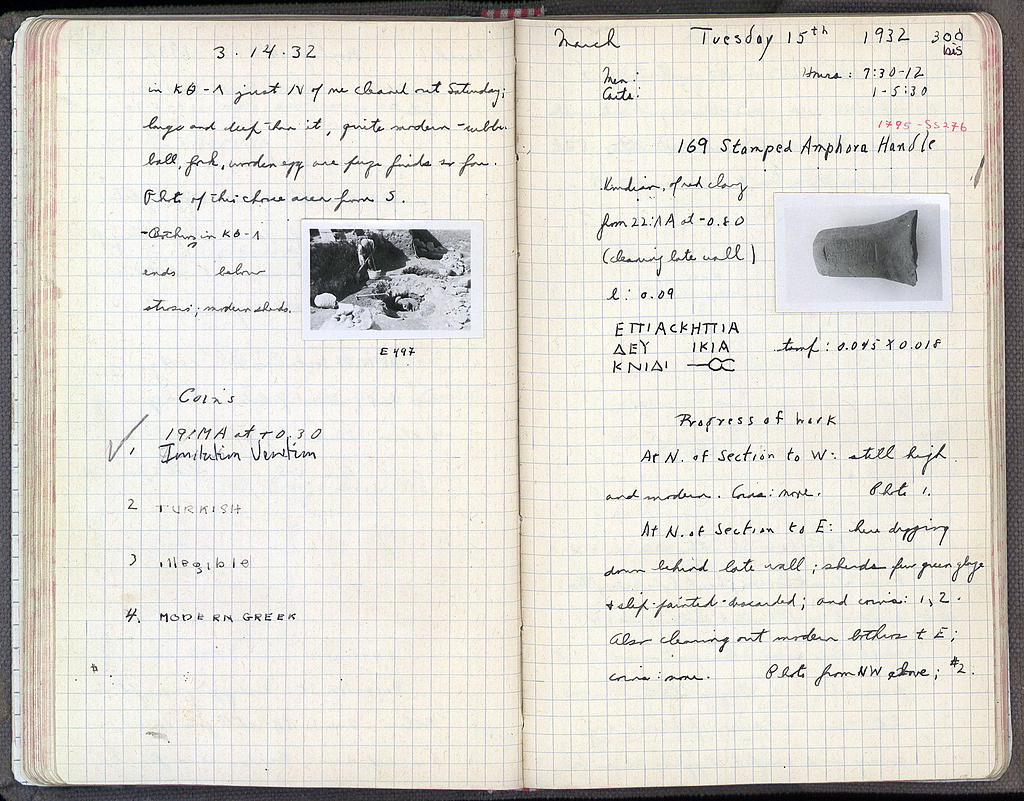 3·14·32
in ΚΘ-Λ just N of one cleaned out Saturday;
large and deep than it, quite modern - rubber
ball, fork, wooden egg are finds so far.
Photo of this area from S.
- Bothros in ΚΘ-Λ
ends below
strosis; modern sherds.
E 497
Coins
19/ΜΑ at +0.30
1 Imitation Venetian
2 TURKISH
3 illegible
4. MODERN GREEK
March Tuesday 15th 1932 300 bis
Men: Hours: 7:30-12
Carts: 1-5:30
1795-SS276
169 Stamped Amphora Handle
Knidian, of red clay
from 22:ΛΑ at -0.80
(cleaning late wall)
l: 0.09
ΕΠΙΑΣΚΗΠΙΑ
ΔΕΥ ΙΚΙΑ
ΚΝΙΔΙ
stamp: 0.045 x 0.018
Progress of work
At N. of Section to W: still high
and modern. Coins: none. Photo 1.
At N. of Section to E: here digging
down behind late wall; sherds few green glaze
+ slip-painted - discarded; and coins: 1, 2.
Also clearing out modern bothros to E;
coins: none. Photo from NW above; #2.